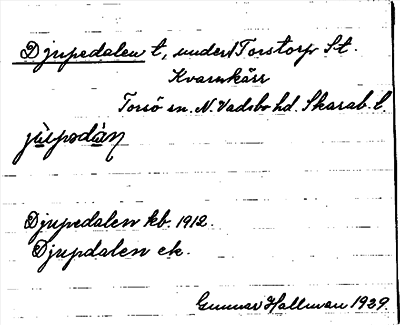 Djupedalen t, under Torstorp St.
Kvarnkärr
Torsö sn. N. Vadsbo hd. Skarab. l.
Djupedalen kb. 1912.
Djupdalen ek.
Gunnar Hallman 1939.